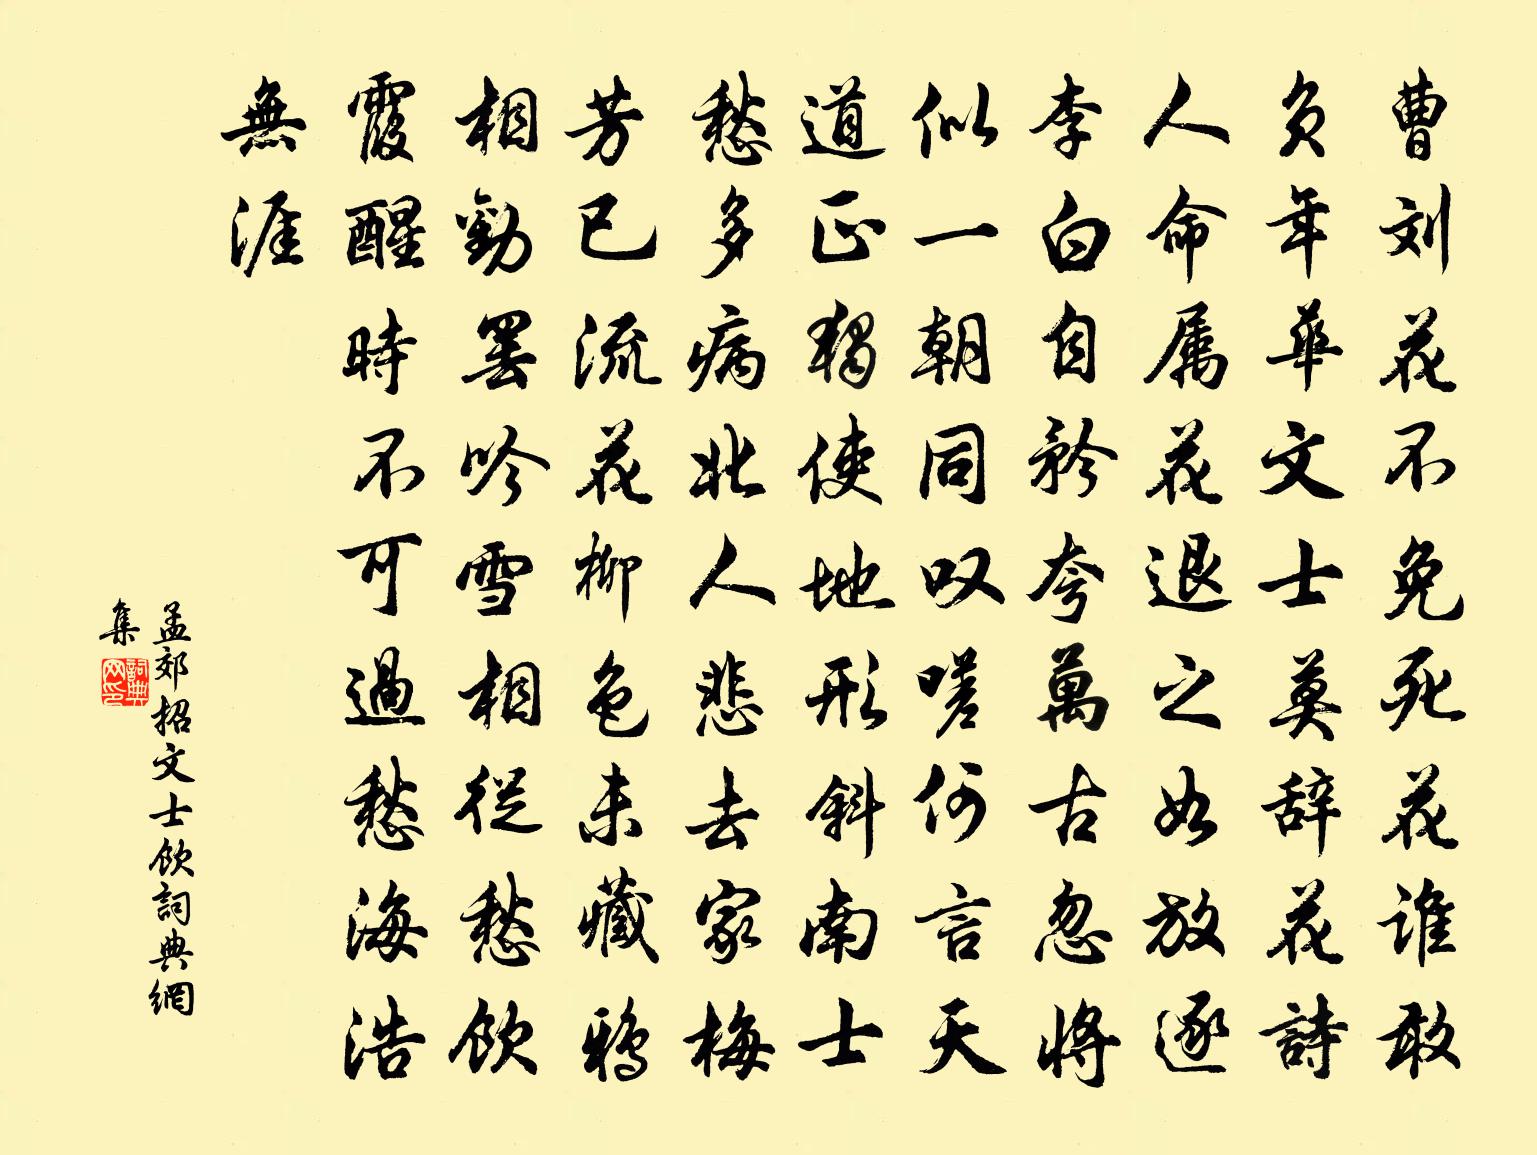 曹刘花不免死花谁敢
负年華文士莫辞花詩
人命属花退之如放逐
李白自矜夸萬古忽将
似一朝同叹嗟何言天
道正獨使地形斜南士
愁多病北人悲去家梅
芳已流花柳色未藏鴉
相勸罢吟雪相從愁飲
霞醒時不可過愁海浩
無涯
孟郊招文士飲詞典網
集
詞典
网印